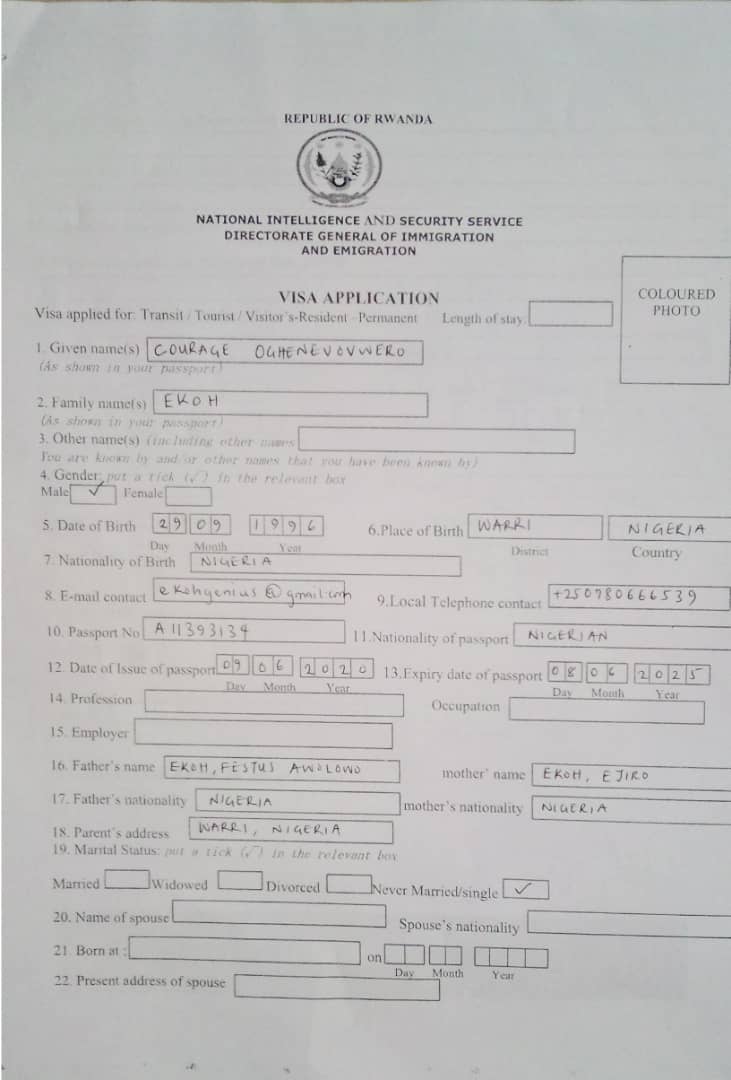 REPUBLIC OF RWANDA
NATIONAL INTELLIGENCE AND SECURITY SERVICE
DIRECTORATE GENERAL OF IMMIGRATION
AND EMIGRATION
COLOURED
PHOTO
VISA APPLICATION
Visa applied for: Transit / Tourist / Visitor's-Resident - Permanent Length of stay:
1. Given name(s) COURAGE OGHENEVOVWERO
(As shown in your passport)
2. Family name(s) EKOH
(As shown in your passport)
3. Other name(s) (including other names
You are known by and/or other names that you have been known by)
4. Gender: put a tick (√) in the relevant box
Male ✓ Female
5. Date of Birth 29 09 1996 6.Place of Birth WARRI NIGERIA
Day Month Year District Country
7. Nationality of Birth NIGERIA
8. E-mail contact ekohgenius@gmail.com 9.Local Telephone contact +250780666539
10. Passport No A11393134 11.Nationality of passport NIGERIAN
12. Date of Issue of passport 09 06 2020 13.Expiry date of passport 08 06 2025
Day Month Year Day Month Year
14. Profession Occupation
15. Employer
16. Father's name EKOH, FESTUS AWOLOWO mother' name EKOH, EJIRO
17. Father's nationality NIGERIA mother's nationality NIGERIA
18. Parent's address WARRI, NIGERIA
19. Marital Status: put a tick (√) in the relevant box
Married Widowed Divorced Never Married/single ✓
20. Name of spouse Spouse's nationality
21. Born at : on
Day Month Year
22. Present address of spouse